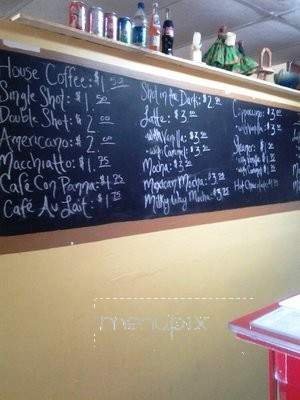 House Coffee: $1.50
Single Shot: $1.50
Double Shot: $2.00
Americano: $2.00
Macchiatto: $1.75
Café Con Panna: $1.75
Café Au Lait: $1.75
Shot in the Dark: $2.
Latte: $2.
with Vanilla: $2.
with Caramel: $3.
Mocha: $2.
Mexican Mocha: $3.
Milky Way Mocha: $3.
Cappuccino: $3.
with Vanilla: $3.
Steamer: $1.
with Vanilla
Hot Chocolate
menupix